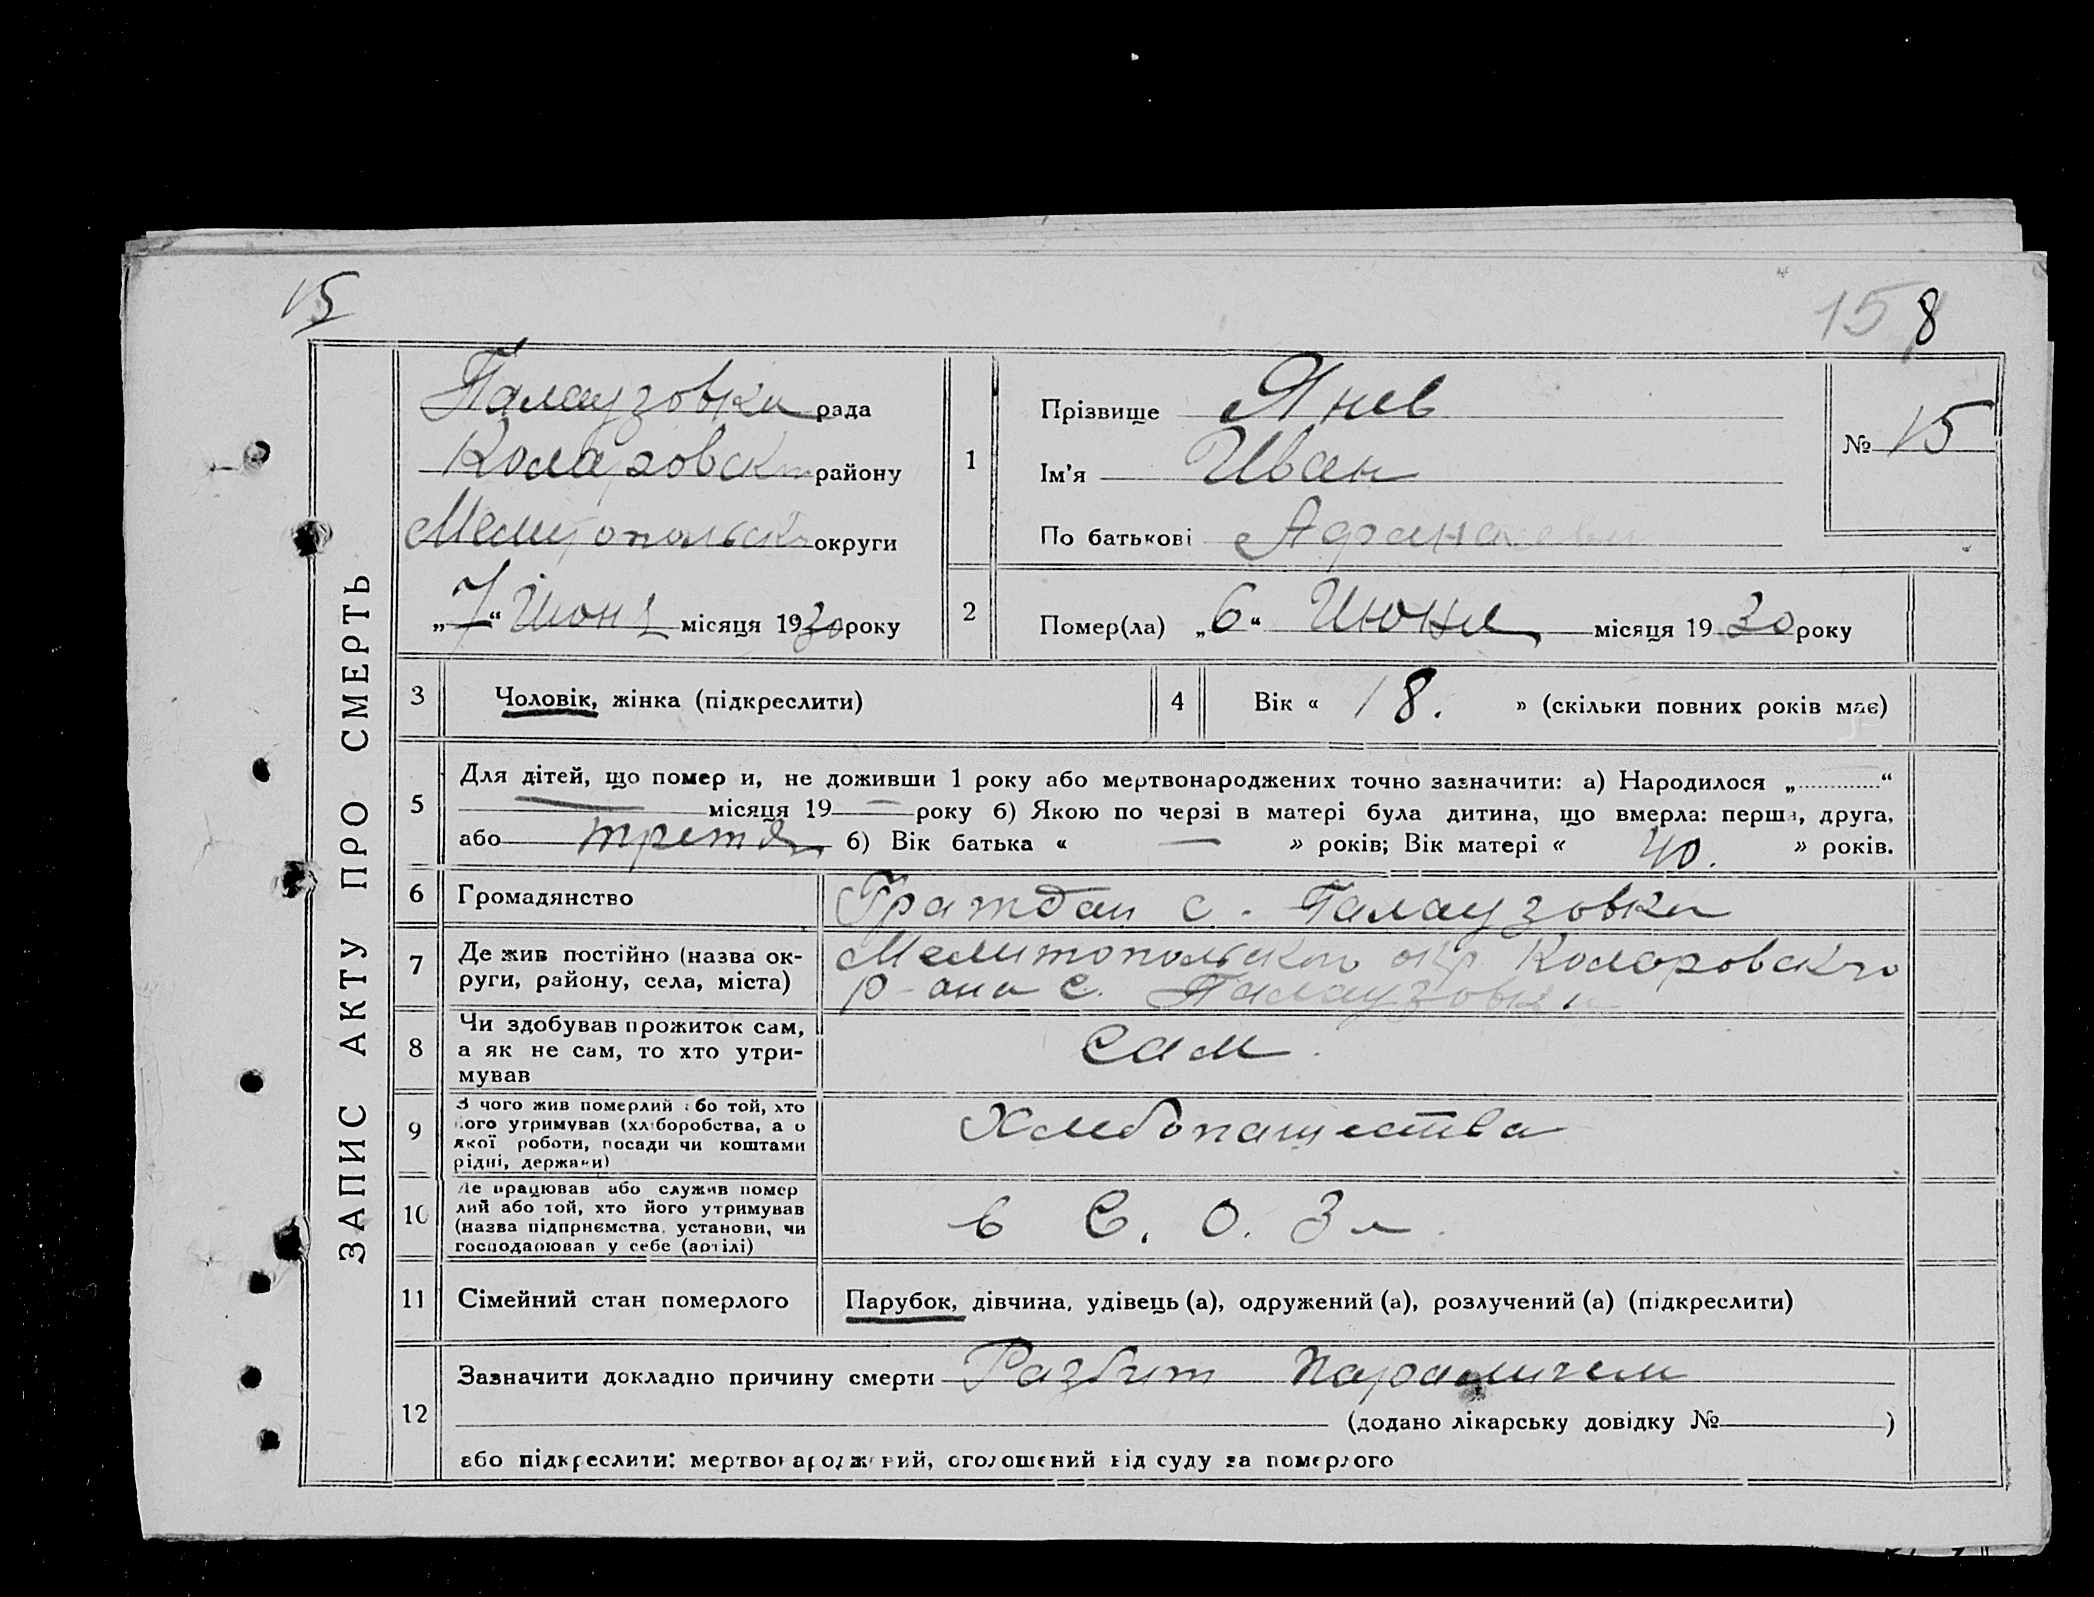 15
15 8
ЗАПИС АКТУ ПРО СМЕРТЬ
Палаузовки рада
Коларовск району
Мелитопольск округи
„7“ Июня місяця 1930 року
1
Прізвище Янев
Ім'я Иван
По батькові
№ 15
2
Помер(ла) „6“ Июня місяця 1930 року
3
Чоловік, жінка (підкреслити)
4
Вік « 18. » (скільки повних років має)
5
Для дітей, що помер и, не доживши 1 року або мертвонароджених точно зазначити: а) Народилося „.............“
— місяця 19 — року б) Якою по черзі в матері була дитина, що вмерла: перша, друга,
або третя б) Вік батька « — » років; Вік матері « 40. » років.
6
Громадянство
Граждан с. Палаузовки
7
Де жив постійно (назва ок-
руги, району, села, міста)
Мелитопольского окр Коларовского
р-она с. Палаузовки
8
Чи здобував прожиток сам,
а як не сам, то хто утри-
мував
Сам.
9
З чого жив померлий або той, хто
його утримував (хліборобства, а о
якої роботи, посади чи коштами
рідні, держави)
Хлебопашества
10
Де працював або служив помер
лий або той, хто його утримував
(назва підприємства, установи, чи
господарював у себе (артілі)
в С. О. З
11
Сімейний стан померлого
Парубок, дівчина, удівець (а), одружений (а), розлучений (а) (підкреслити)
12
Зазначити докладно причину смерти Разбит параличем
(додано лікарську довідку № )
або підкреслити: мертвонароджений, оголошений від суду за померлого